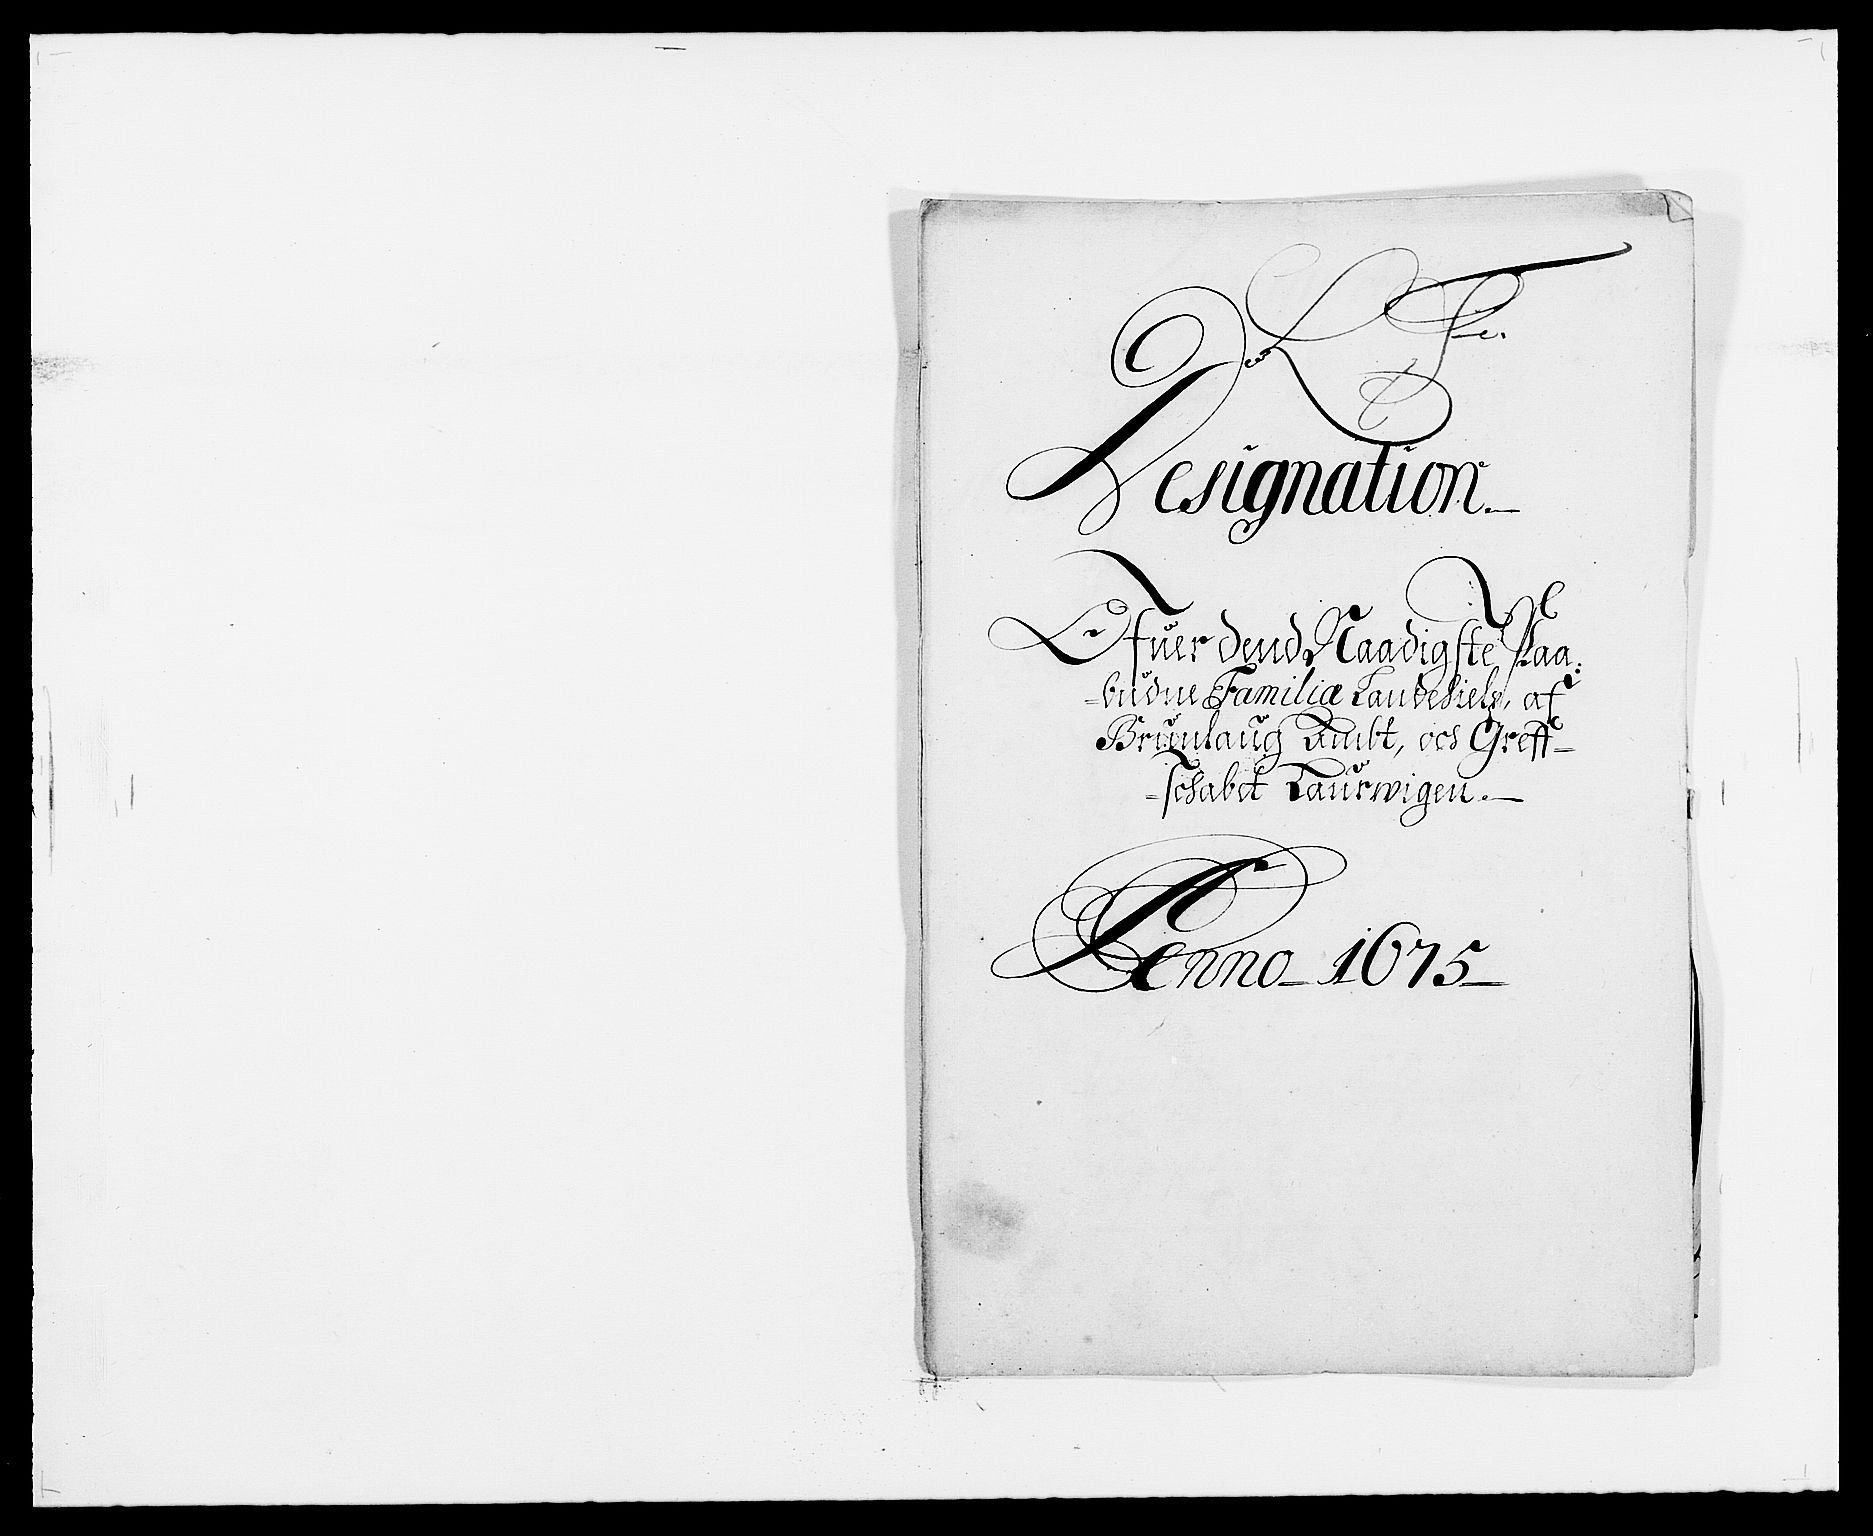 Designation.
Ofuer dend Naadigste Paa-
-budne Familiæ Landehielp, af
Brunlaug Ambt, och Greff-
-schabet Laurwigen.
Anno 1675